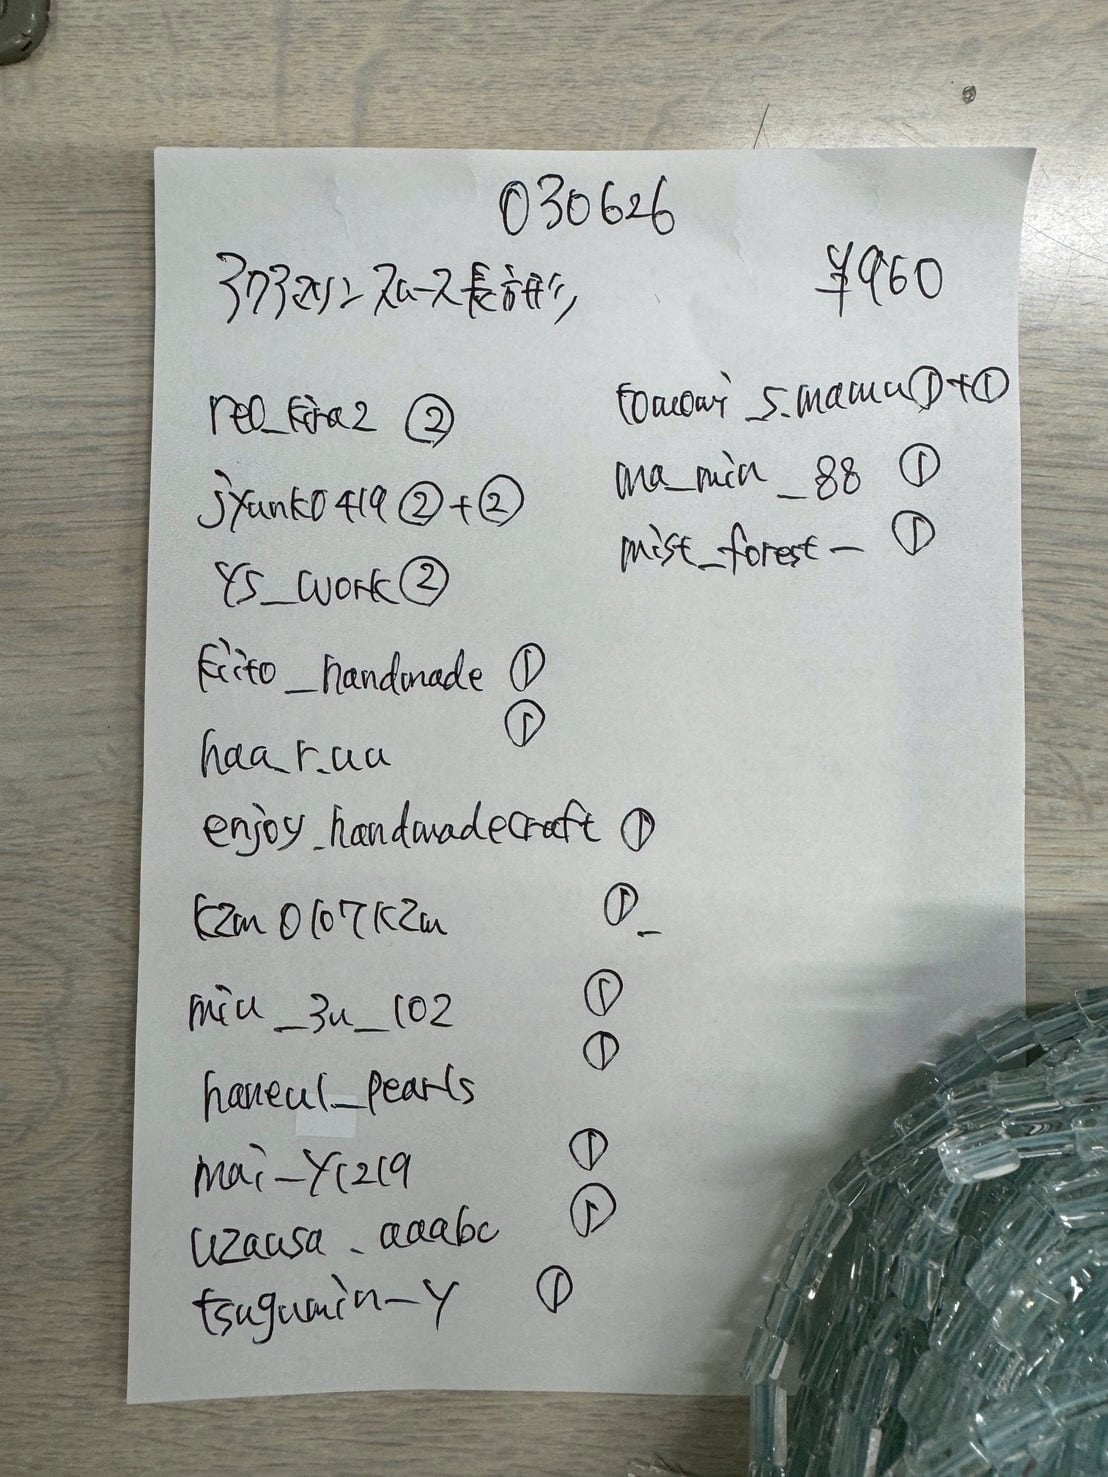 030626
アクアマリン スムース長方形 ¥960
reo_kira2 ②
jyunk0419 ②+②
YS_work ②
kiito_handmade ①
haa_r.uu ①
enjoy_handmadecraft ①
kzm0107kzm ①_
miu_3u_102 ①
haneul_pearls ①
mai-y1219 ①
uzausa.aaabc ①
tsugumin-y ①
tomomi_s.mama ①+①
ma_min_88 ①
mist_forest- ①